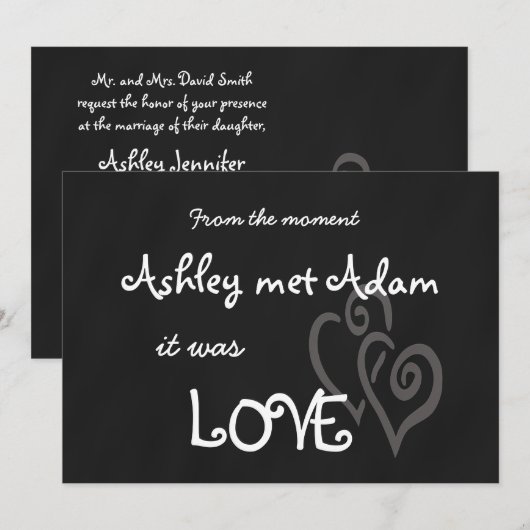 Mr. and Mrs. David Smith
request the honor of your presence
at the marriage of their daughter,
Ashley Jennifer
From the moment
Ashley met Adam
it was
LOVE